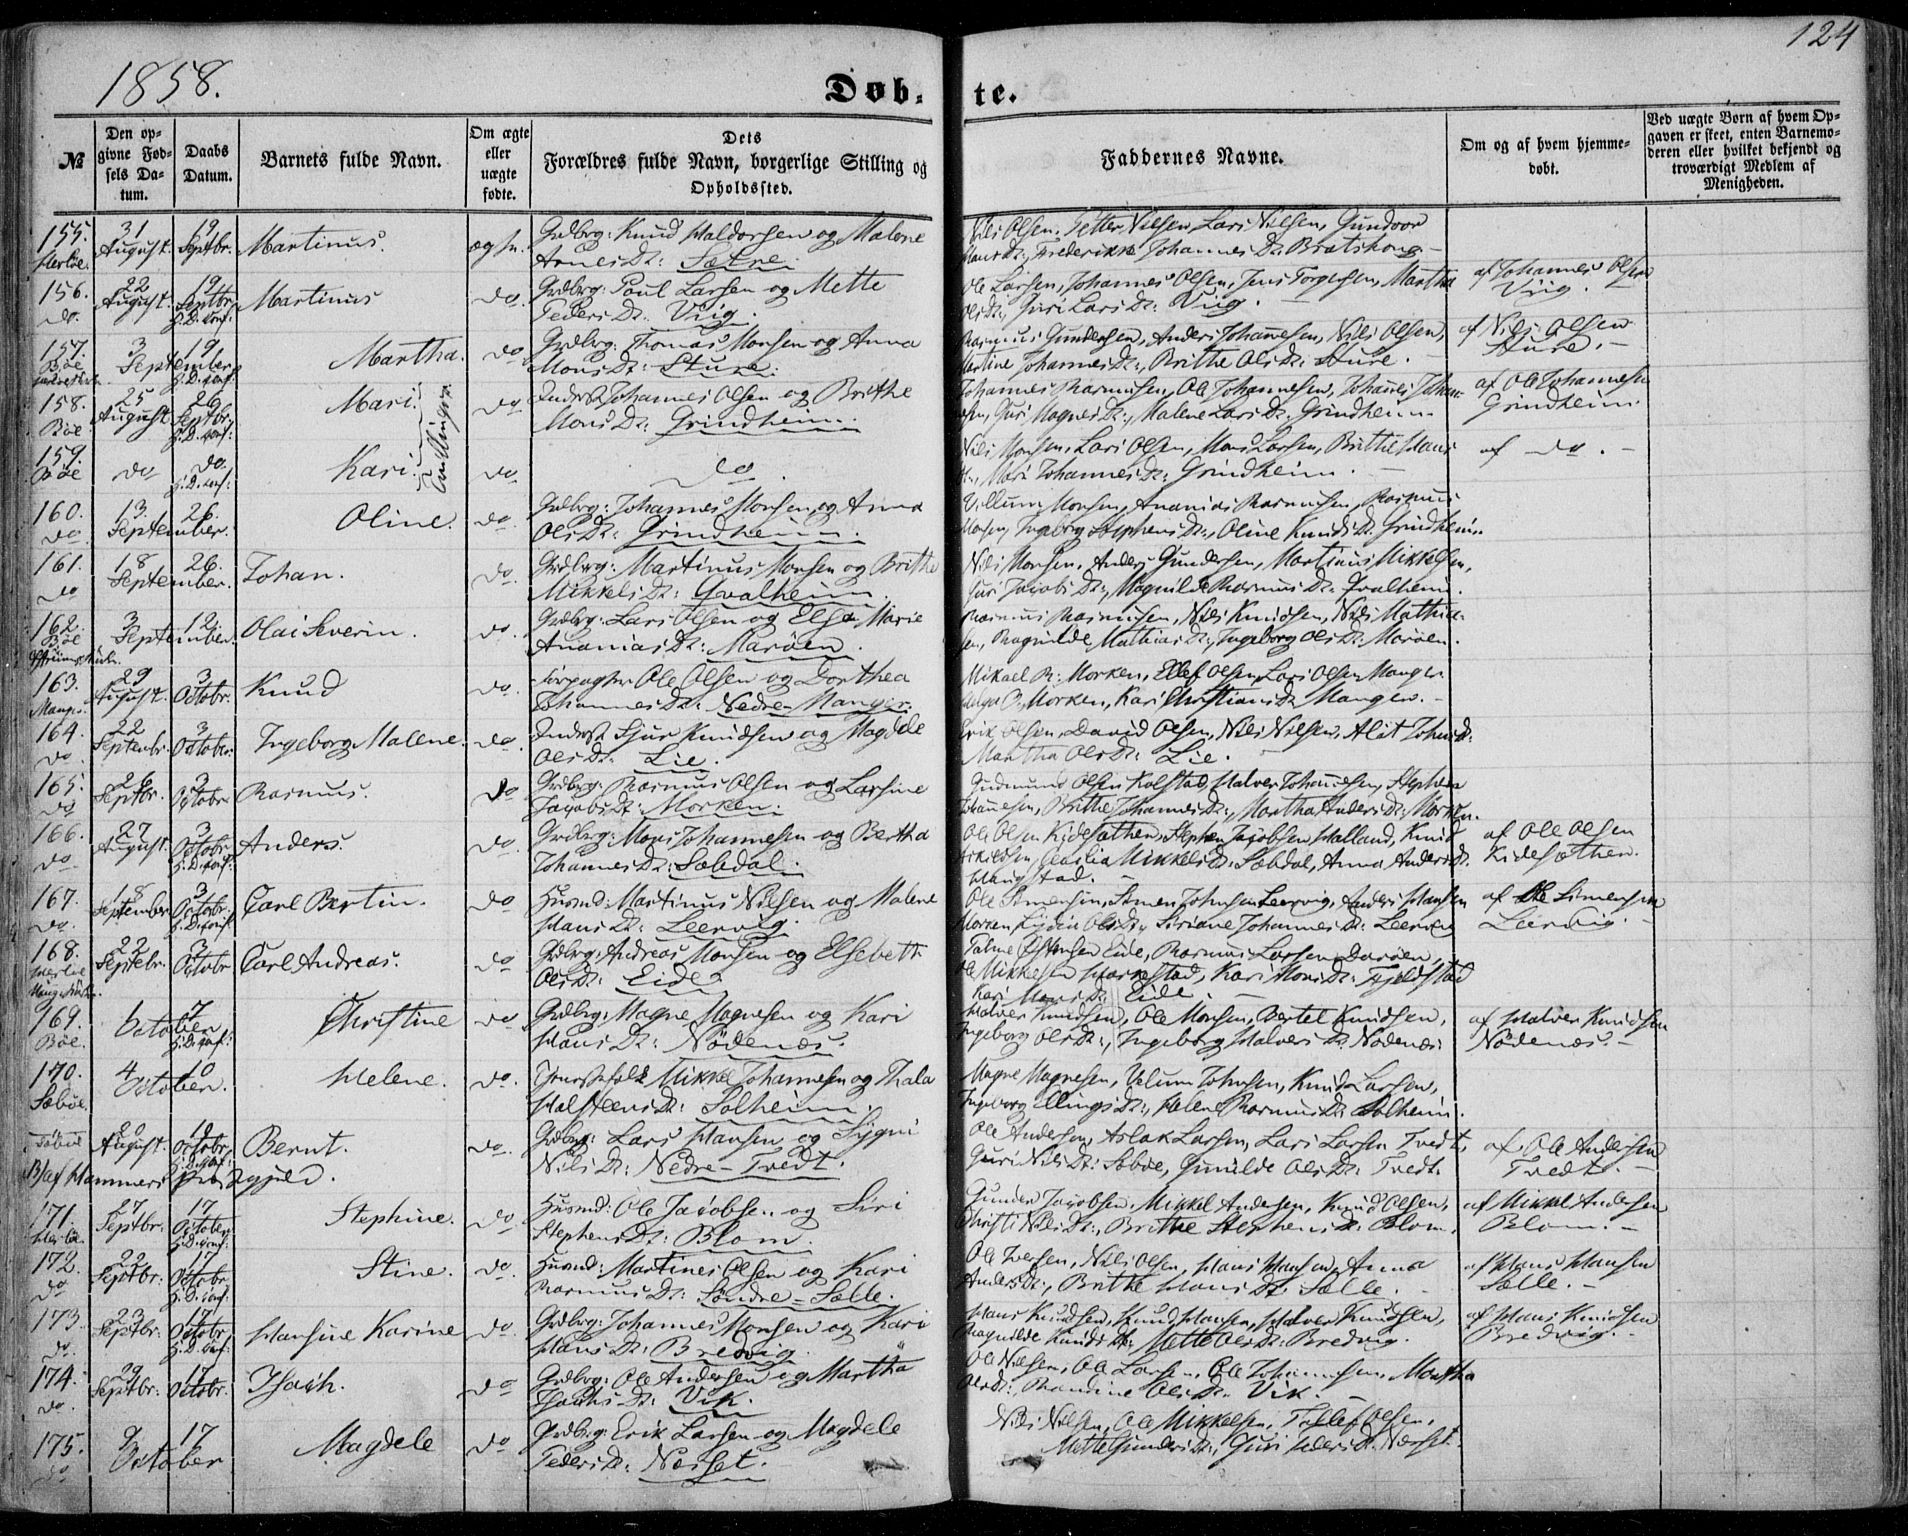 1858.
124
Døb-
te.
№
Den op-
givne Fød-
sels Da-
tum.
Daabs
Datum.
Barnets fulde Navn.
Om ægte
eller
uægte
fødte.
Dets
Forældres fulde Navn, borgerlige Stilling og
Opholdssted.
Faddernes Navne.
Om og af hvem hjemme-
døbt.
Ved uægte Børn af hvem Op-
gaven er skeet, enten Barnemo-
deren eller hvilket bekjendt og
troværdigt Medlem af
Menigheden.
155. 31 August. 19 Septbr. Martinus. Grdbrg: Knud Haldorsen og Malene
Nils Olsen, Petter Nilsen, Lars Nilsen, Gundvor
Herløe. Arnes Dr: Sætre.
Hans Dr: Frederikke Johannes Dr: Bratshoug
156. 22 August. 19 Septbr. Martinus do. Grdbrg: Poul Larsen og Mette
Ole Larsen, Johannes Olsen, Jens Torgersen, Martha
af Johannes Olsen
do. H.D. conf: Peders Dr: Viig.
Ols Dr:, Guri Lars Dr: Viig.
Viig.
157. 3 September 19 Martha. do Grdbrg: Thomas Monsen og Anna
Rasmus Gundersen, Anders Johannesen, Nils Olsen,
af Nils Olsen
Bøe H.D. conf: Mons Dr: Sture.
Martine Johannes Dr:, Brithe Ols Dr: Sture.
Sture.
158. 25 August. 26 Septbr. Mari. do Inderst Johannes Olsen og Brithe
Johannes Rasmussen, Ole Johannesen, Johannes Johan-
af Ole Johannesen
Bøe H.D. conf: Mons Dr: Grindheim.
sen, Guri Magnes Dr:, Malene Lars Dr: Grindheim
Grindheim
Tvillinger
159. do do. Kari. do. do
Nils Monsen, Lars Olsen, Mons Larsen, Brithe Hans
af do.
Bøe H.D. conf:
Dr:, Mari Johannes Dr: Grindheim.
160. 13 26. September. Oline. do. Grdbrg: Johannes Monsen og Anna
Villum Monsen, Ananias Rasmussen, Rasmus
do Ols Dr: Grindheim.
Monsen, Ingeborg Stephens Dr:, Oline Knuds Dr: Grindheim.
161. 18 26. September. Johan. do. Grdbrg: Martinus Monsen og Brithe
Nils Monsen, Anders Gundersen, Martinus Mikkelsen,
do Mikkels Dr: Qvalheim.
Guri Jacobs Dr:, Magnilde Rasmus Dr: Qvalheim.
162. 3 12. September. Olai Severin. do. Grdbrg: Lars Olsen og Elsa Marie
Rasmus Rasmussen, Nils Knudsen, Nils Mathia-
Bøe Ananias Dr: Marøen.
sen, Ragnilde Mathias Dr:, Ingeborg Ols Dr: Marøen.
163. 29 August. 3 Octobr. Knud do. Ole Olsen og Dorthea
Mikael R: Morken, Ellef Olsen, Lars Olsen Manger
Manger. Johannes Dr: Nedre-Manger.
Helga R: Morken, Kari Christians Dr: Manger.
164. 22 Septembr. 3 Octobr. Ingeborg Malene. do. Inderst Sjur Knudsen og Magdele
Erik Olsen, David Olsen, Nils Nilsen, Alit Johns Dr:
do. Ols Dr: Lie.
Martha Ols Dr: Lie.
165. 26 Septbr. 3 Octobr. Rasmus. do Grdbrg: Rasmus Olsen og Larsine
Gudmund Olsen Kolstad, Halver Johannesen, Stephen
do Jacobs Dr: Morken.
Johannesen, Brithe Johannes Dr:, Martha Anders Dr: Morken.
166. 27 August. 3 Octobr. Anders. do. Grdbrg: Mons Johannesen og Bertha
Ole Olsen Kidesæthen, Stephen Jacobsen Halland, Knud
af Ole Olsen
do H.D. conf: Johannes Dr: Sæbdal.
Cecilia Mikkels Dr: Sæbdal, Anna Anders Dr.
Kidesæthen.
Haugstad.
167. 18 Septembr. 3 Octobr. Carl Bertin. do Husmd: Martinus Nilsen og Malene
Ole Simensen, Simen Johnsen Leervig, Anders Hansen
af Ole Simensen
do. H.D. conf: Hans Dr: Leervig
Morken, Lydia Ols Dr, Siriane Johannes Dr: Leervig
Leervig
168. 22 Septbr. 3 Octobr. Carl Andreas. do Grdbrg: Andreas Monsen og Elsebeth
Eide, Rasmus Larsen Darøen,
Herløe Ols Dr: Eide
Ole Mikkelsen Harkestad, Kari Mons Dr: Fjeldstad
Kari Mons Dr: Eide.
169. 6 7 October Christine do Grdbrg: Magne Magnesen og Kari
Halver Knudsen, Ole Monsen, Bertel Knudsen,
af Halver Knudsen
Bøe. H.D. conf: Hans Dr: Nødenæs.
Ingeborg Ols Dr:, Ingeborg Halvers Dr: Nødenæs.
Nødenæs.
170. 4 10 October. Helene. do. Mikkel Johannesen og Thala
Magne Magnesen, Velum Johnsen, Knud Larsen,
Sæbøe. Halsteens Dr: Solheim.
Ingeborg Ellings Dr:, Helene Rasmus Dr: Solheim.
Sæbøe August. 10 Octobr. Bernt. do. Grdbrg: Lars Hansen og Sygni
Ole Andersen, Aslak Larsen, Lars Larsen Tvedt,
af Ole Andersen
H.D. conf: Nils Dr: Nedre-Tvedt.
Guri Nils Dr: Sæbøe, Gunilde Ols Dr: Tvedt.
Tvedt.
af Hammers Præstegjeld.
171. 27 Septbr. 17 October Stephine. do Husmd: Ole Jacobsen og Siri
Gunder Jacobsen, Mikkel Andersen, Knud Olsen,
af Mikkel Andersen
Herløe. H.D. conf: Stephens Dr: Blom.
Christi Nils Dr:, Brithe Stephens Dr: Blom.
Blom.
172. 22 Septbr. 17 Octobr Stine. do. Husmd: Martines Olsen og Kari
Ole Iversen, Nils Olsen, Hans Hansen, Anna
af Hans Hansen
do H.D. conf: Rasmus Dr: Søndre-Sælle.
Anders Dr:, Brithe Hans Dr: Sælle.
Sælle.
173. 23 Septbr. 17 Octobr Hansine Karine do Grdbrg: Johannes Monsen og Kari
Hans Knudsen, Knud Hansen, Halver Knudsen,
af Hans Knudsen
do. H.D. conf: Hans Dr: Bredvig.
Ragnilde Knuds Dr: Mette Ols Dr: Bredvig.
Bredvig.
174. 29 Septbr. 17 Octobr. Isach. do Grdbrg: Ole Andersen og Martha
Ole Nilsen, Ole Larsen, Ole Johannesen, Martha
do. Isachs Dr: Vik.
Ols Dr:, Randine Ols Dr: Vik.
175. 9 17 October Magdele do Grdbrg: Erik Larsen og Magdele
Nils Nilsen, Ole Mikkelsen, Tollef Olsen,
do Peders Dr: Næset.
Mette Gunders Dr:, Guri Peders Dr: Næset.